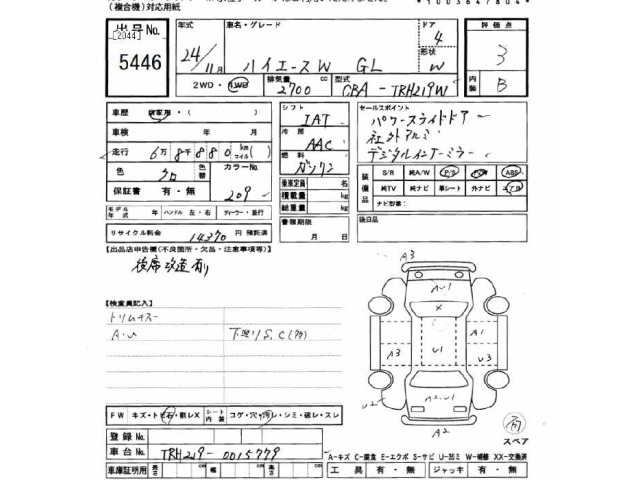 (複合機)対応用紙
*1003647804*
出品No. [2044] 5446
年式 24/11月
車名・グレード ハイエースW GL
ドア 4
形状 W
評価点 3
内装 B
2WD・4WD 排気量 2700 cc 型式 CBA-TRH219W
車歴 自家用・( )
車検 年 月
走行 6万8千880 km マイル( )
色 クロ 色替 カラーNo. 209
保証書 有・無
モデル年式 年 ハンドル 左・右 ディーラー・並行
リサイクル料金 14370 円 預託済
シフト IAT
冷房 AAC
燃料 ガソリン
乗車定員 名
積載量 kg
総重量 kg
書類期限 月 日
セールスポイント
パワースライドドアー
社外アルミ
デジタルインナーミラー
装備品 S/R 純A/W P/S P/W ABS
純TV 純ナビ 革シート 外ナビ エアB
ナビ型番:
後日品
【出品店申告欄(不良箇所・欠品・注意事項等)】
後席改造有り
【検査員記入】
トリムキズー
A・U 下廻りS.C(フク)
A3
A・U1
X
A1
A3 U1 U3
U2 A2・U1
A2
スペア
FW キズ・トビ石・割レX シート内装 コゲ・穴・汚レ・シミ・破レ・スレ
登録No.
車台No. TRH219-0015779
車庫証明用 長さ cm 幅 cm 高さ cm
A-キズ C-腐食 E-エクボ S-サビ U-凹ミ W-補修 XX-交換済
工具 有・無 ジャッキ 有・無